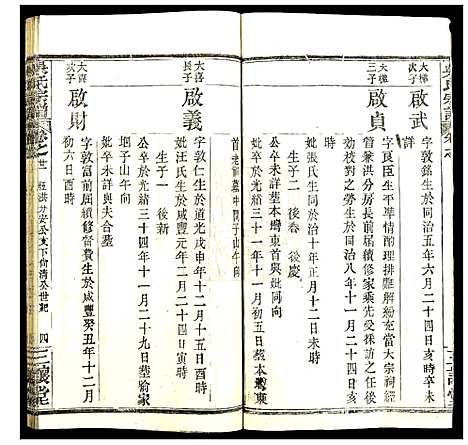 大樺次子
啟武
字敦銘生於同治五年六月二十四日亥時卒未
詳
大樺三子
啟貞
字良臣生平準情酌理排難解紛充當大宗祠經
管兼洪分房長前屆續修家乘先受採訪之任後
効校對之勞生於同治八年十一月二十四日亥
時
妣張氏生同於治十年正月十二日未時
生子二 後春 後慶
公卒於光緒三十一年十一月初五日塟本塆東
妣卒未詳塟本塆東首與妣同向
首老祠墓中間子山午向
大喜長子
啟義
字敦仁生於道光戊申年十二月十五日丑時
妣汪氏生於咸豐元年二月二十四日寅時
生子一 後新
公卒於光緒三十四年十一月二十九日塟喻家
垇子山午向
妣卒未詳與夫合墓
大喜次子
啟財
字敦富前屆續修督費生於咸豐癸丑年十二月
初六日酉時
吳氏宗譜
四
三讓堂